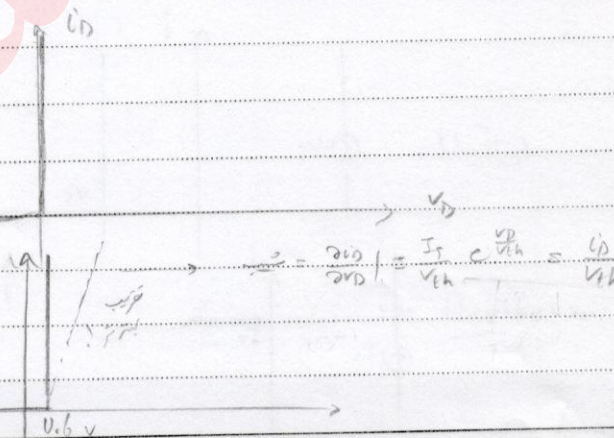 i_D
v_D
شیب = ∂i_D/∂v_D | = I_s/V_th e^(v_D/V_th) = i_D/V_th
0.6 v